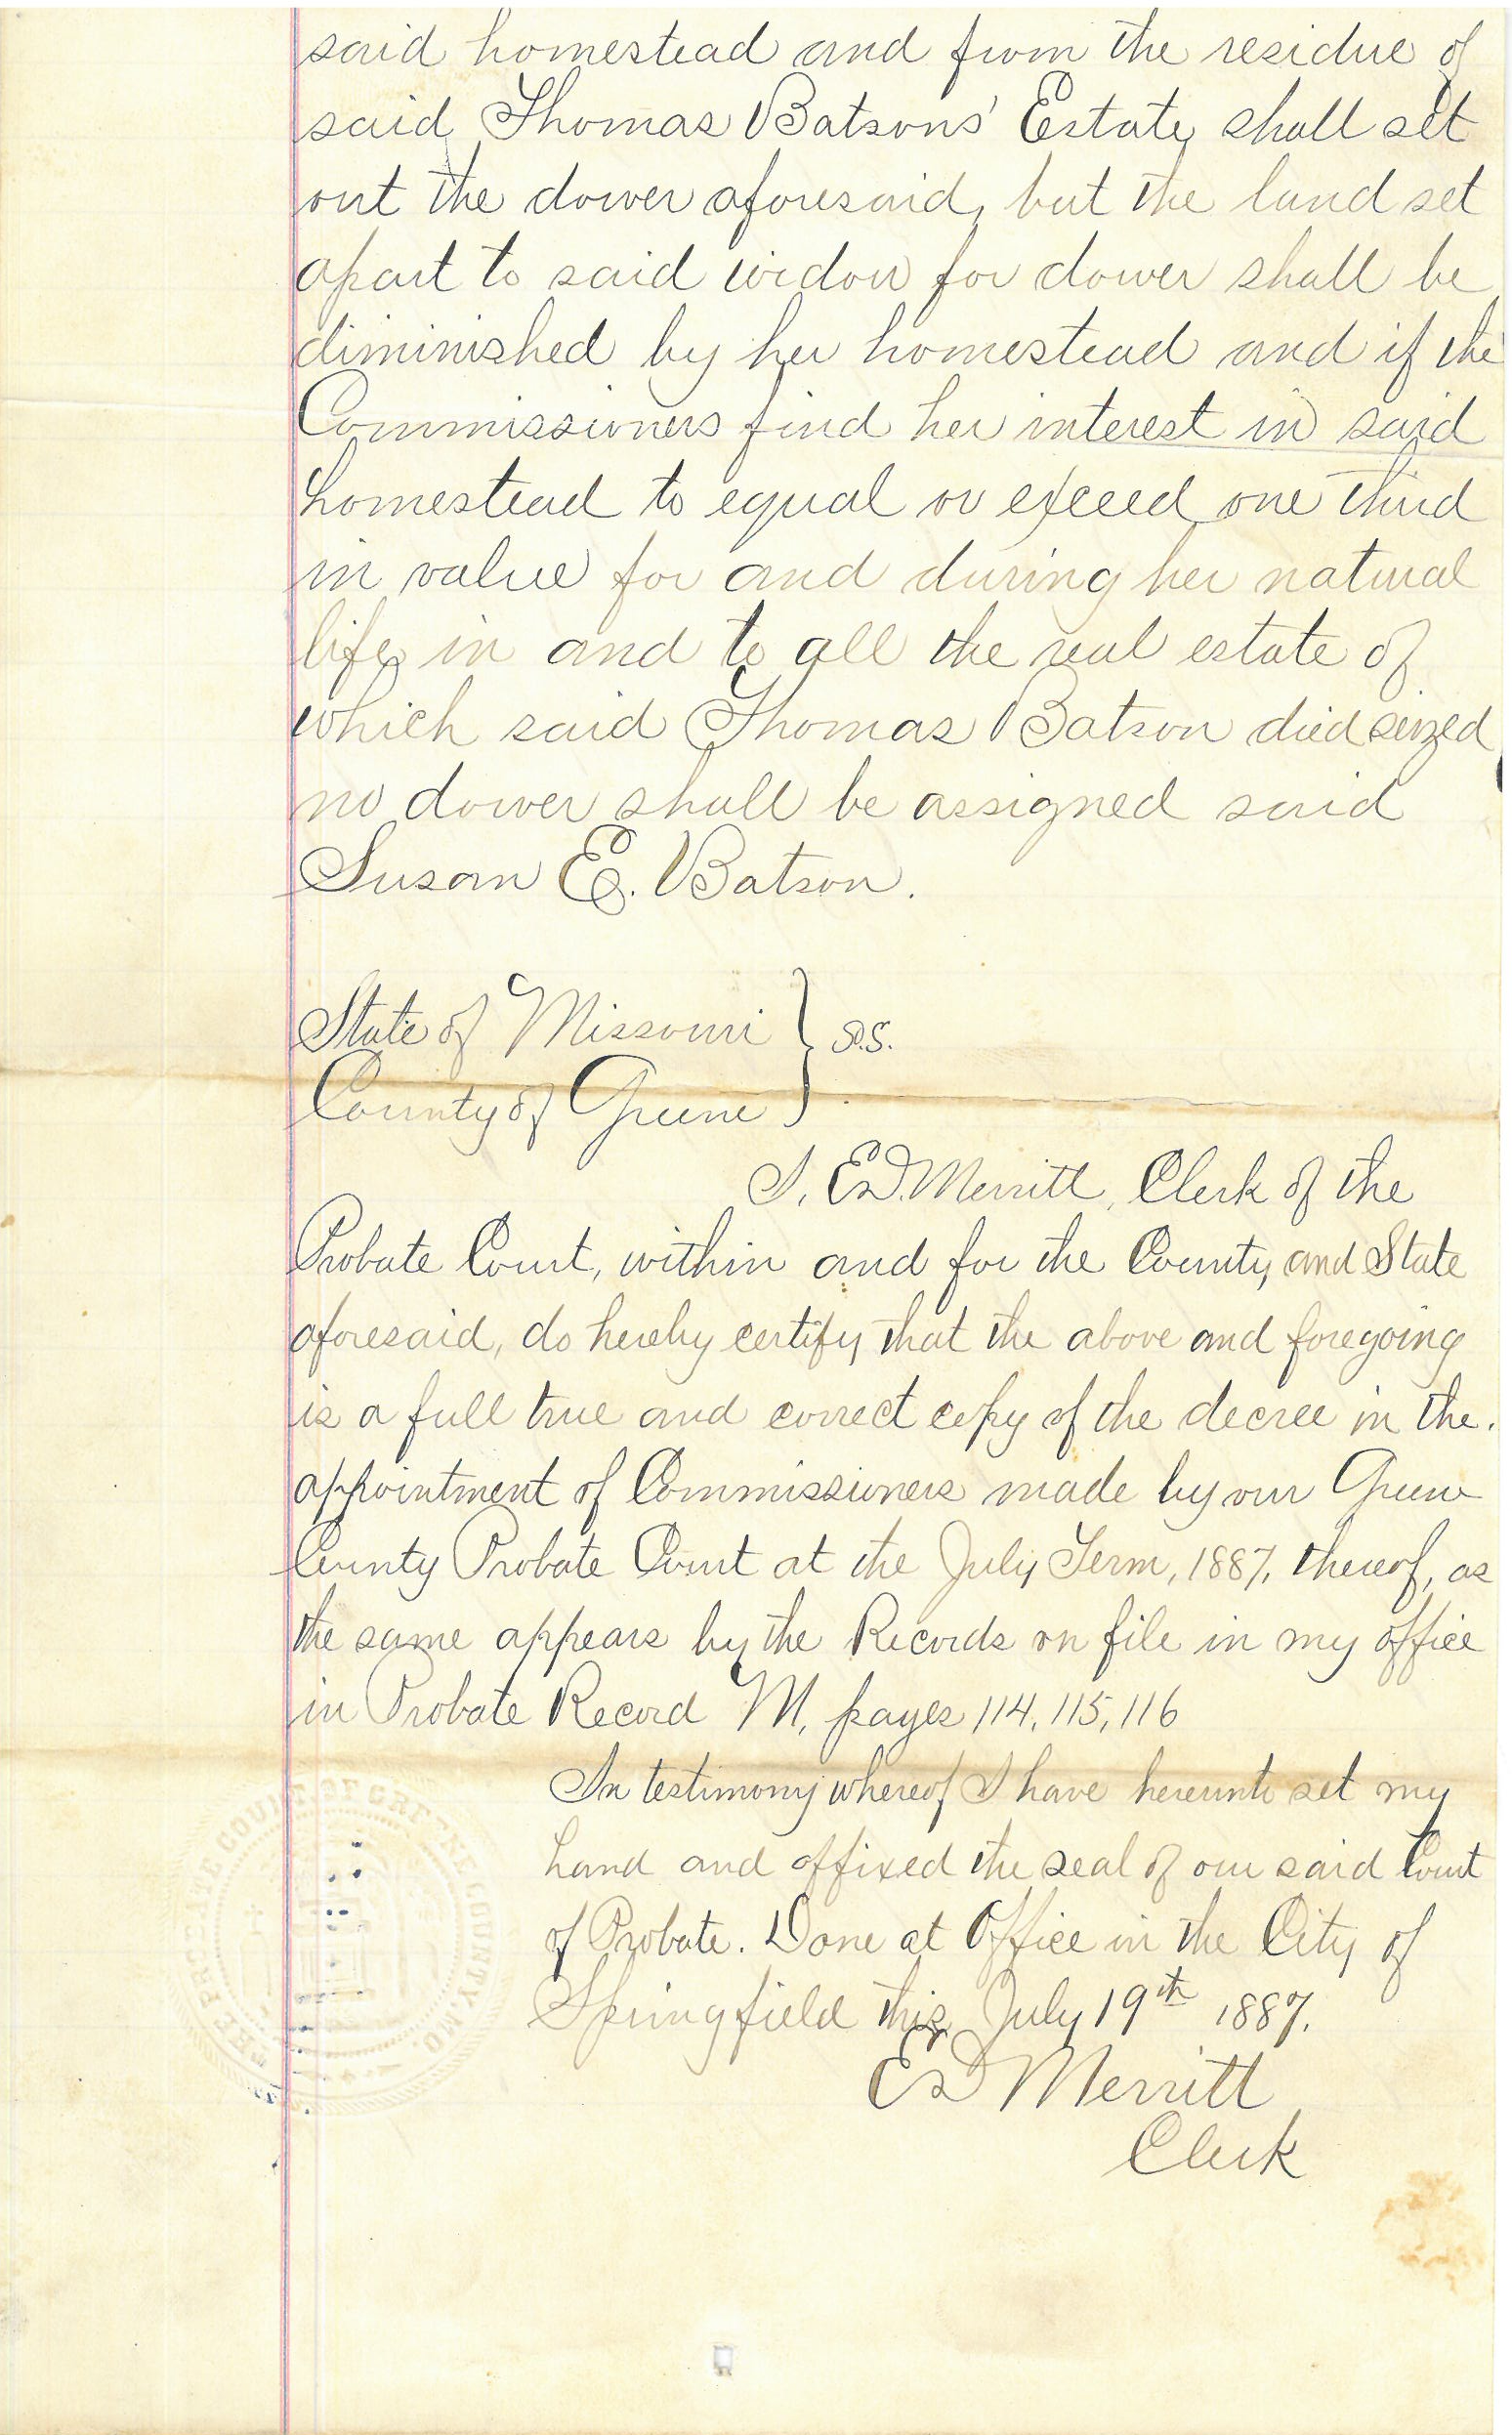 said homestead and from the residue of
said Thomas Batsons' Estate shall set
out the dower aforesaid, but the land set
apart to said widow for dower shall be
diminished by her homestead and if the
Commissioners find her interest in said
homestead to equal or exceed one third
in value for and during her natural
life in and to all the real estate of
which said Thomas Batson died seized
no dower shall be assigned said
Susan E. Batson.
State of Missouri } S.S.
County of Greene }
I, E.D. Merritt, Clerk of the
Probate Court, within and for the County and State
aforesaid, do hereby certify that the above and foregoing
is a full true and correct copy of the decree in the
appointment of Commissioners made by our Greene
County Probate Court at the July Term, 1887, thereof, as
the same appears by the Records on file in my office
in Probate Record M, pages 114, 115, 116
In testimony whereof I have hereunto set my
hand and affixed the seal of our said Court
of Probate. Done at Office in the City of
Springfield this July 19th 1887.
ED Merritt
Clerk
THE PROBATE COURT OF GREENE COUNTY, MO.